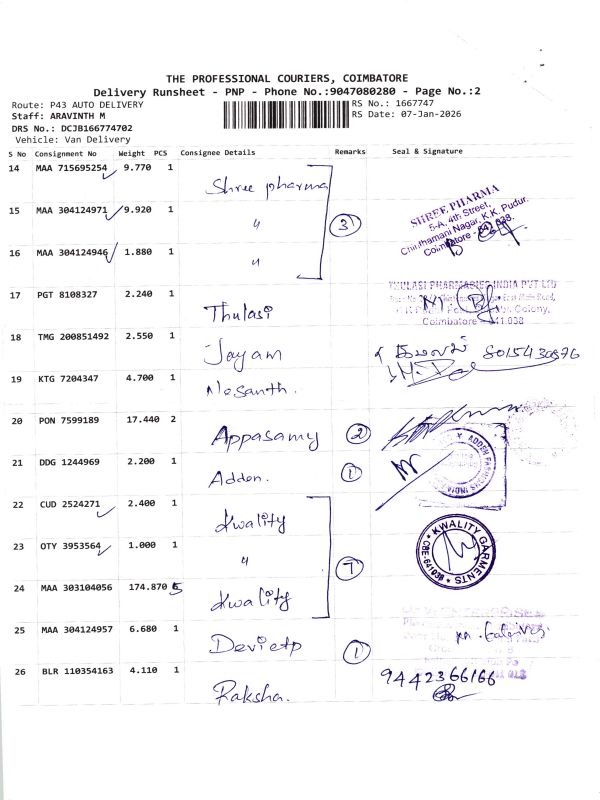 THE PROFESSIONAL COURIERS, COIMBATORE
Delivery Runsheet - PNP - Phone No.:9047080280 - Page No.:2
Route: P43 AUTO DELIVERY
RS No.: 1667747
Staff: ARAVINTH M
RS Date: 07-Jan-2026
DRS No.: DCJB166774702
Vehicle: Van Delivery
S No Consignment No Weight PCS Consignee Details Remarks Seal & Signature
14 MAA 715695254 9.770 1 Shree pharma
15 MAA 304124971 9.920 1 〃 3
SHREE PHARMA
5-A, 4th Street,
Chinthamani Nagar, K.K. Pudur,
Coimbatore - 641 038.
16 MAA 304124946 1.880 1 〃
17 PGT 8108327 2.240 1 Thulasi
THULASI PHARMACIES INDIA PVT LTD
Colony,
Coimbatore - 641 038
18 TMG 200851492 2.550 1 Jayam
8015430876
19 KTG 7204347 4.700 1 Nesanth.
20 PON 7599189 17.440 2 Appasamy 2
21 DDG 1244969 2.200 1 Adden. 1
22 CUD 2524271 2.400 1 Kwality
23 OTY 3953564 1.000 1 〃 7
KWALITY GARMENTS
CBE-641038
24 MAA 303104056 174.870 5 Kwality
25 MAA 304124957 6.680 1 Devietp 1
26 BLR 110354163 4.110 1 Raksha.
9442366166